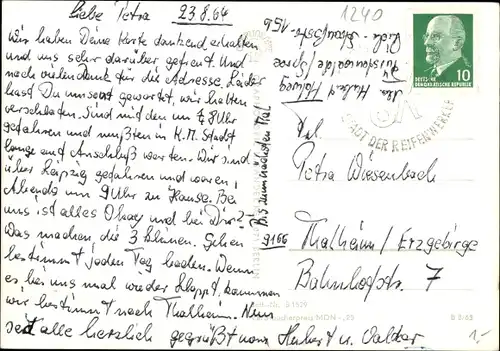 Liebe Petra 23.8.64
Wir haben Deine Karte dankend erhalten
und uns sehr darüber gefreut. Und
noch vielen dank für die Adresse. Leider
hast Du umsonst gewartet, wir hatten
verschlafen. Sind mit dem um ½8 Uhr
gefahren und mußten in K.M. Stadt
lange auf Anschluß warten. Wir sind
über Leipzig gefahren und waren
Abends um 9 Uhr zu Hause. Bei
uns ist alles Okay und bei Dir?
Was machen die 3 Blumen. Gehen
bestimmt jeden Tag baden. Wenn
es bei uns mal wieder klappt, kommen
wir bestimmt nach Thalheim. Nun
seit alle herzlich gegrüßt von Hubert u.
Bis zum nächsten Mal
Abs. Hubert
Fürstenwalde/Spree
15b
1240
10
DEUTSCHE
DEMOKRATISCHE REPUBLIK
STADT DER REIFENWERKER
Frl.
Petra Wiesenbach
9166 Thalheim/Erzgebirge
Bahnhofstr. 7
B 2/63
1,-